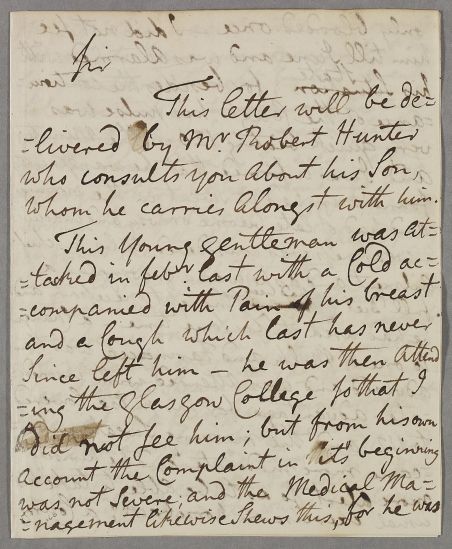 Sir
This letter will be de=
=livered by Mr Robert Hunter
who consults you about his Son,
whom he carries alongst with him.
This Young gentleman was at=
=tacked in febr last with a Cold ac=
=companied with Pain of his breast
and a Cough which last has never
Since left him – he was then attend
=ing the Glasgow College so that I
did not see him; but from his own
account the Complaint in its beginning
was not Severe and the Medical Ma=
=nagement likewise Shews this, for he was